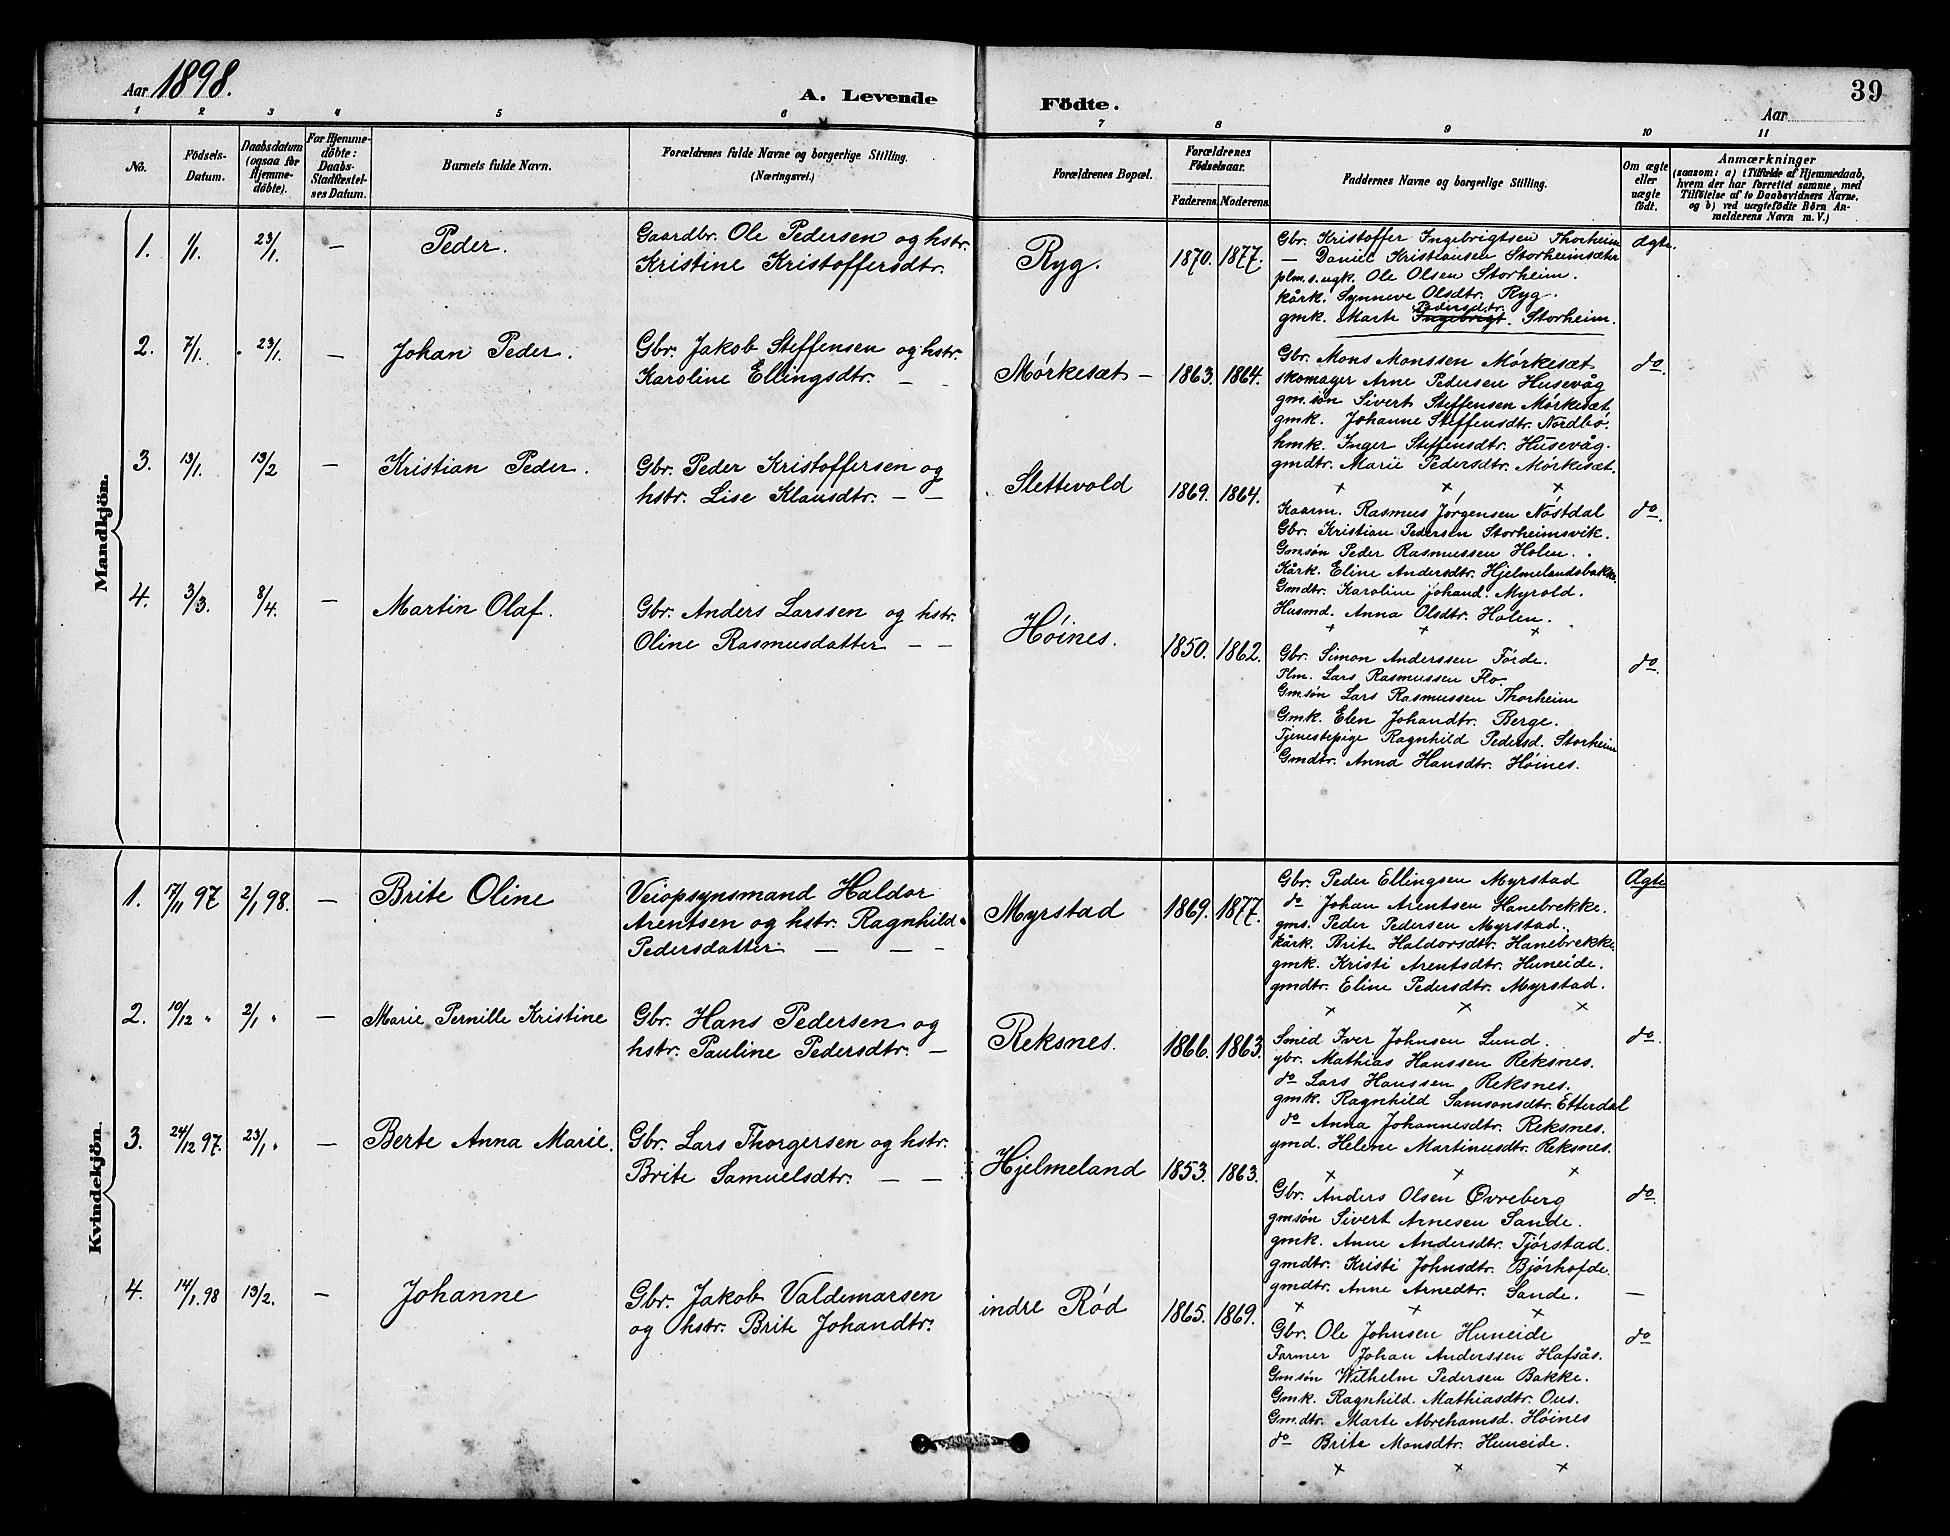 Aar 1898.
A. Levende Födte.
Aar
39
1 2 3 4 5 6 7 8 9 10 11
No.
Födsels-Datum.
Daabsdatum (ogsaa for Hjemme-döbte).
For Hjemme-döbte: Daabs-Stadfæstel-ses Datum.
Barnets fulde Navn.
Forældrenes fulde Navne og borgerlige Stilling.
(Næringsvei.)
Forældrenes Bopæl.
Forældrenes Födselsaar.
Faderens. Moderens.
Faddernes Navne og borgerlige Stilling.
Om ægte eller uægte födt.
Anmærkninger
(saasom: a) i Tilfælde af Hjemmedaab,
hvem der har forrettet samme, med
Tilföielse af to Daabsvidners Navne.
og b) ved uægtefödte Börn An-
melderens Navn m. V.)
Mandkjön.
1. 1/1. 23/1. — Peder.
Gaardbr. Ole Pedersen og hstr.
Kristine Kristoffersdtr.
Ryg. 1870. 1877.
Gbr. Kristoffer Ingebrigtsen Thorheim
— Daniel Kristiansen Storheimsæter
plm. s. ugk. Ole Olsen Storheim.
kårk. Synneve Olsdtr. Ryg.
Pedersdtr.
gmk. Marte Ingebrigt. Storheim.
ægte.
2. 7/1. 23/1. — Johan Peder.
Gbr. Jakob Steffensen og hstr.
Karoline Ellingsdtr. — —
Mörkesæt — 1863. 1864.
Gbr. Mons Monssen Mörkesæt
skomager Arne Pedersen Husevåg
gm.sön Sivert Steffensen Mörkesæt
gmk. Johanne Steffensdtr. Nordbö.
hmk. Inger Steffensdtr. Husevåg.
gmdtr. Marie Pedersdtr. Mörkesæt.
x x x
do.
3. 13/1. 13/2 — Kristian Peder.
Gbr. Peder Kristoffersen og
hstr. Lise Klausdtr. — —
Slettevold 1869. 1864.
Kaarm. Rasmus Jörgensen Nöstdal
Gbr. Kristian Pedersen Storheimsvik.
Gmsön Peder Rasmussen Holen.
Kårk. Eline Andersdtr. Hjelmelandsbakke.
Gmdtr. Karoline Johand. Myrold.
Husmd. Anna Olsdtr. Holen.
x x x
do.
4. 3/3. 8/4. — Martin Olaf.
Gbr. Anders Larssen og hstr.
Oline Rasmusdatter — —
Höines. 1850. 1862.
Gbr. Simon Anderssen Förde.
Plm. Lars Rasmussen Flo.
Gmsön Lars Rasmussen Thorheim
Gmk. Elen Johandtr. Berge.
Tjenestepige Ragnhild Pedersd. Storheim
Gmdtr. Anna Hansdtr. Höines.
do
Kvindekjön.
1. 17/11 97 2/1 98. — Brite Oline
Veiopsynsmand Haldor
Arentsen og hstr. Ragnhild
Pedersdatter — — —
Myrstad 1869. 1877.
Gbr. Peder Ellingsen Myrstad
do Johan Arentsen Hanebrekke.
gms. Peder Pedersen Myrstad.
kårk. Brite Haldorsdtr. Hanebrekke.
gmk. Kristi Arentsdtr. Huneide.
gmdtr. Eline Pedersdtr. Myrstad.
x x x
Ægte
2. 10/12 " 2/1 " — Marie Pernille Kristine
Gbr. Hans Pedersen og
hstr. Pauline Pedersdtr. —
Reksnes. 1866. 1863.
Smed Iver Johnsen Lund.
gbr. Mathias Hanssen Reksnes.
do Lars Hanssen Reksnes.
gmk. Ragnhild Samsonsdtr. Etterdal
do Anna Johannesdtr. Reksnes.
gmd. Helene Martinusdtr. Reksnes.
x x x
do.
3. 24/12 97. 23/1 " — Berte Anna Marie.
Gbr. Lars Thorgersen og hstr.
Brite Samuelsdtr. — —
Hjelmeland 1853. 1863.
Gbr. Anders Olsen Øvreberg
gmsön Sivert Arnesen Sande.
gmk. Anne Andersdtr. Tjörstad.
gmdtr. Kristi Johnsdtr. Björhofde.
gmdtr. Anne Arnedtr. Sande.
x x x
do.
—
4. 14/1. 98 13/2. — Johanne
Gbr. Jakob Valdemarsen
og hstr. Brite Johandtr.
indre Röd 1865. 1869.
Gbr. Ole Johnsen Huneide
Farmer Johan Anderssen Hafsås.
Gmsön Wilhelm Pedersen Bakke.
Gmk. Ragnhild Mathiasdtr. Ous.
Gmdtr. Marte Abrehamsd. Höines
do Brite Monsdtr. Huneide.
x x x
do